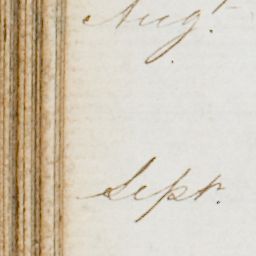 Augt.
Sept.